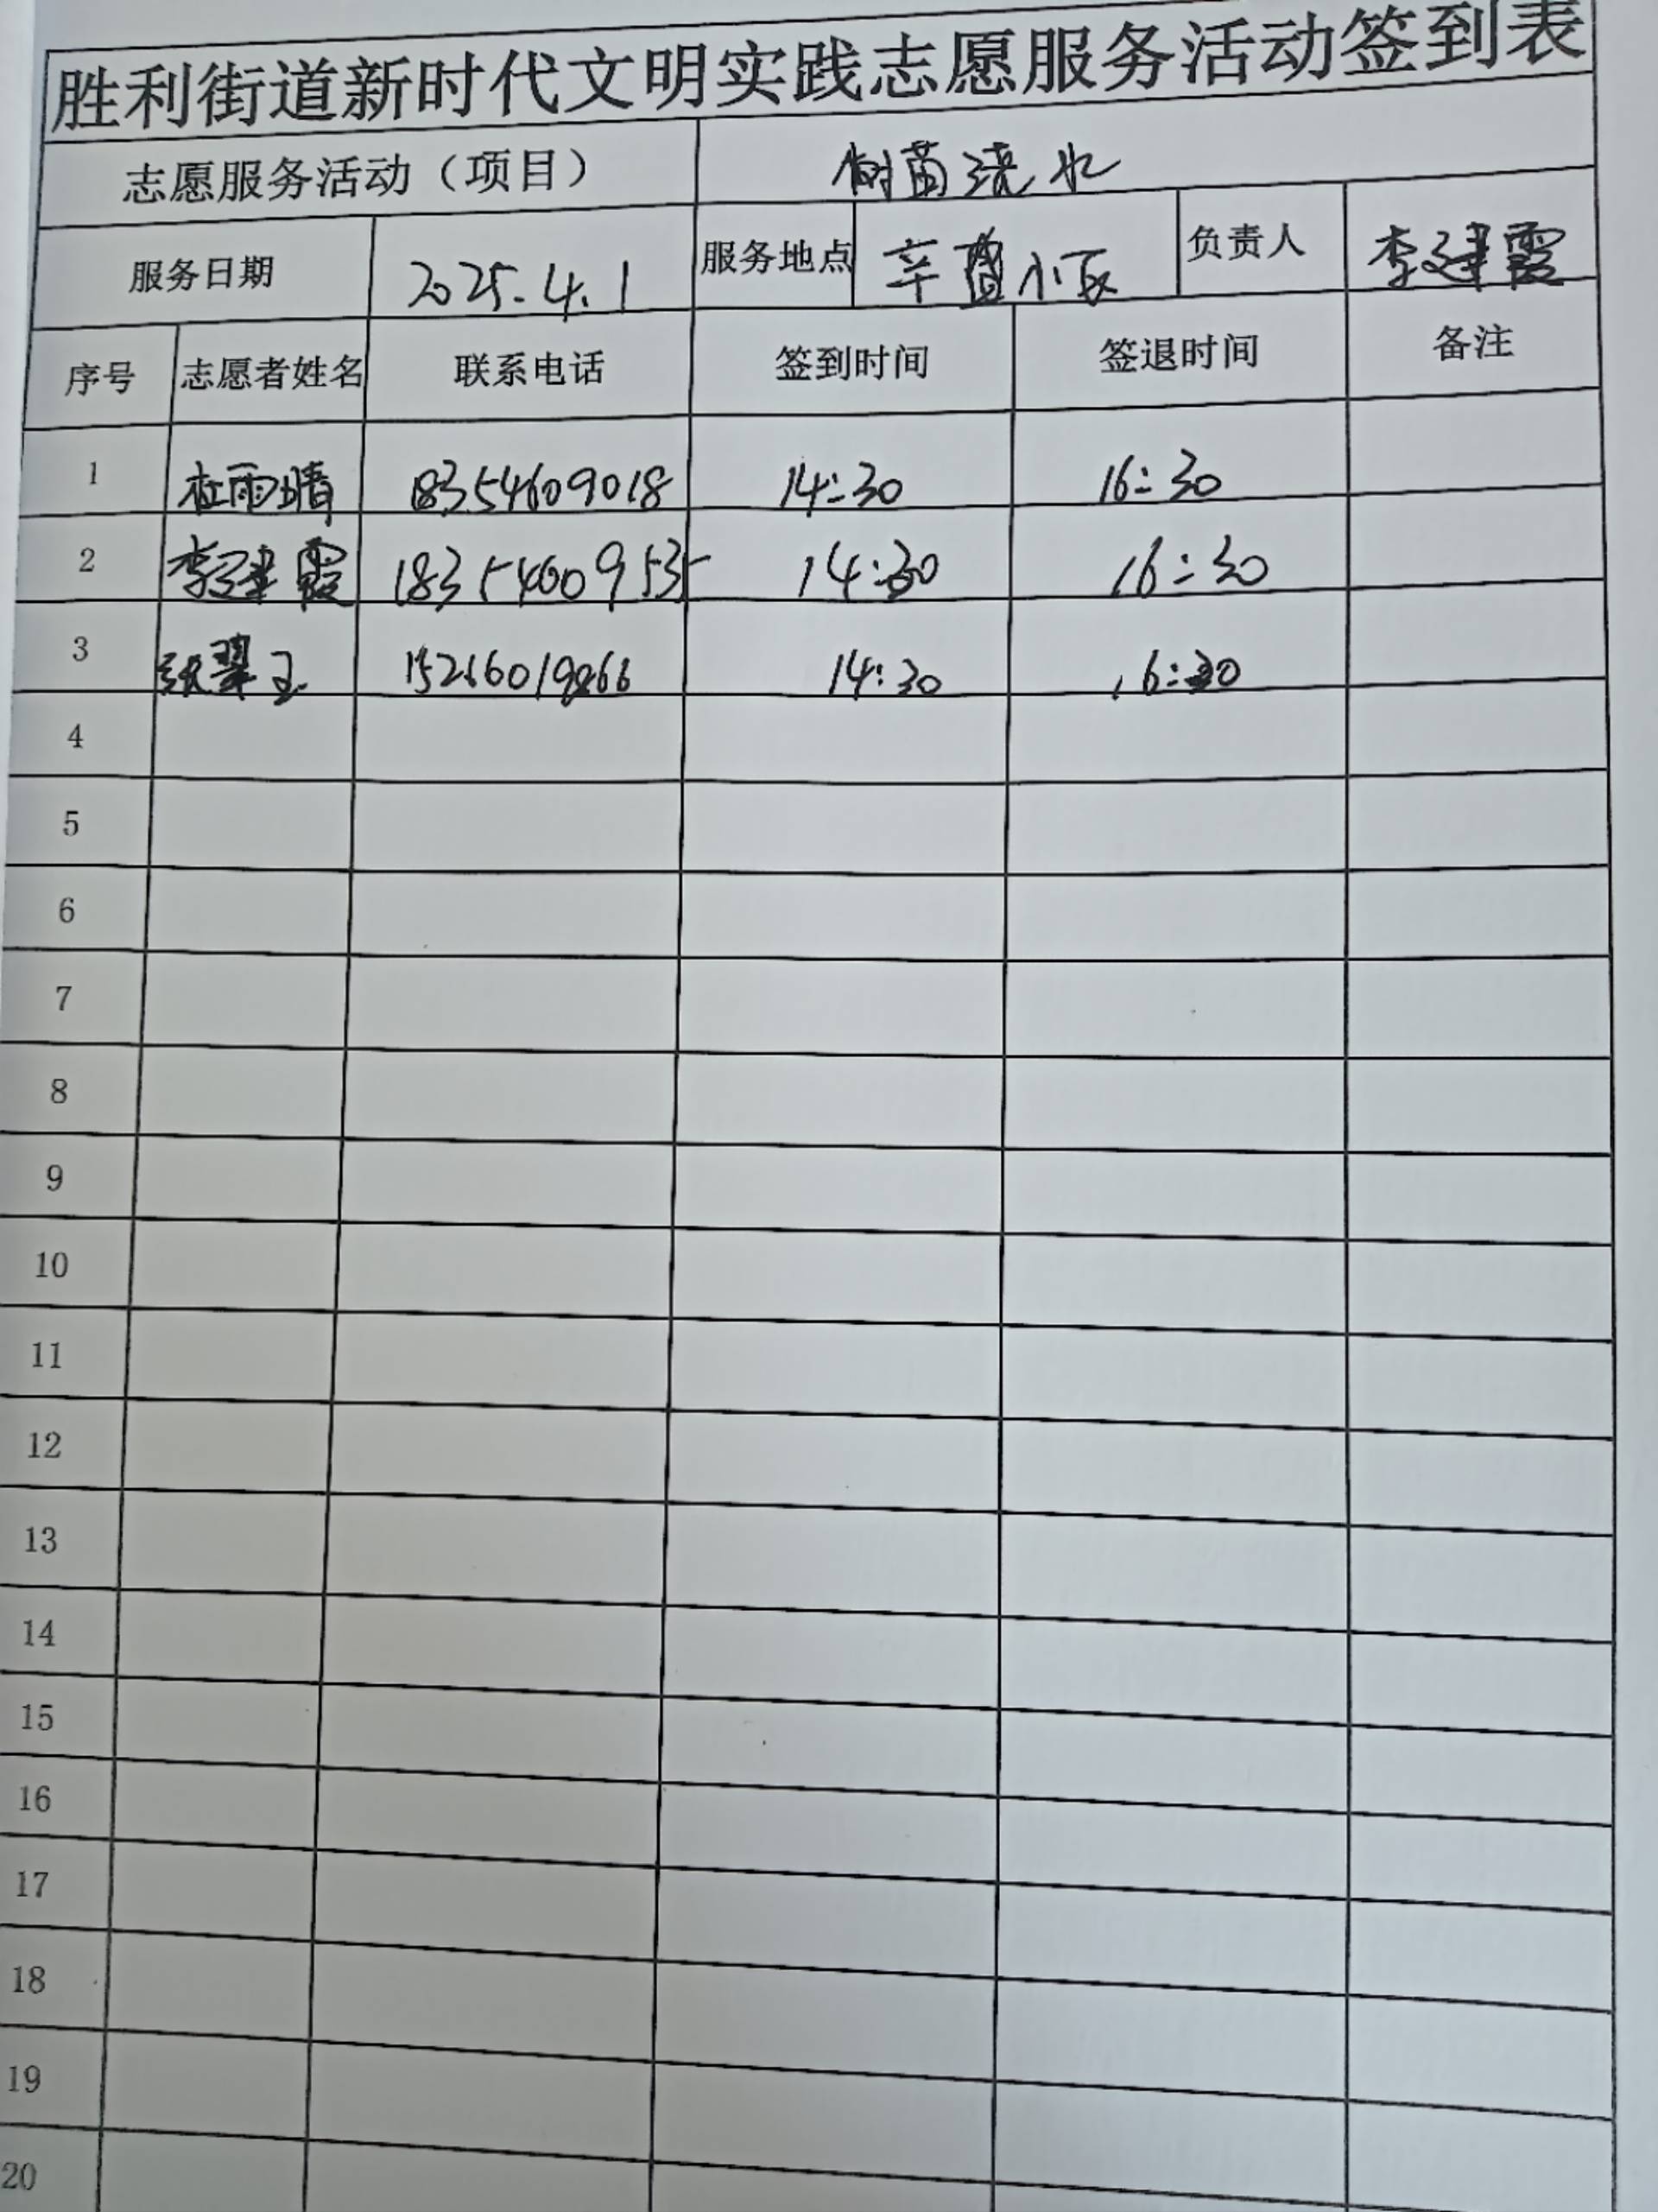 胜利街道新时代文明实践志愿服务活动签到表
志愿服务活动（项目） 树苗浇水
服务日期 2025.4.1 服务地点 辛盛小区 负责人 李建霞
序号 志愿者姓名 联系电话 签到时间 签退时间 备注
1 杜雨晴 18354609018 14:30 16:30
2 李建霞 18354609535 14:30 16:30
3 张翠玉 15266019866 14:30 16:30
4
5
6
7
8
9
10
11
12
13
14
15
16
17
18
19
20